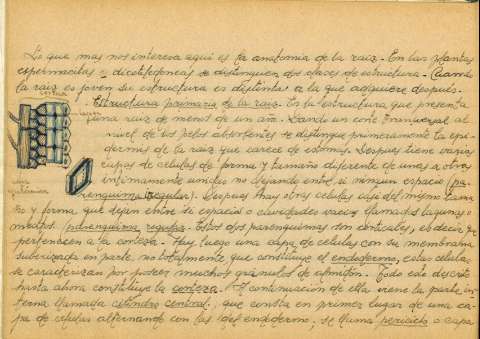 Lo que mas nos interesa aqui es la anatomia de la raiz. En las plantas
espermacitas y dicotiledoneas se distinguen dos clases de estructura. Cuando
la raiz es joven su estructura es distinta a la que adquiere después.
corteza
Estructura primaria de la raiz. Es la estructura que presenta
una raiz de menos de un año. Dando un corte transversal al
nivel de los pelos absorbentes se distingue primeramente la epi-
dermis de la raiz que carece de estomas. Despues tiene varias
capas de celulas de forma y tamaño diferente de unas a otras
intimamente unidas no dejando entre si ningun espacio (pa-
renquima irregular). Despues hay otras celulas casi del mismo tama-
ño y forma que dejan entre si espacios o cavidades vacias llamados lagunas o
meatos (parenquima regular). Estos dos parenquimas son corticales, es decir, que
pertenecen a la corteza. Hay luego una capa de celulas con su membrana
suberizada en parte, no totalmente que constituye el endodermo, estas celulas
se caracterizan por poseer muchos granulos de almidón. Todo este descrito
hasta ahora constituye la corteza. A continuación de ella viene la parte in-
terna llamada cilindro central, que consta en primer lugar de una ca-
pa de celulas alternando con las del endodermo, se llama periciclo o capa